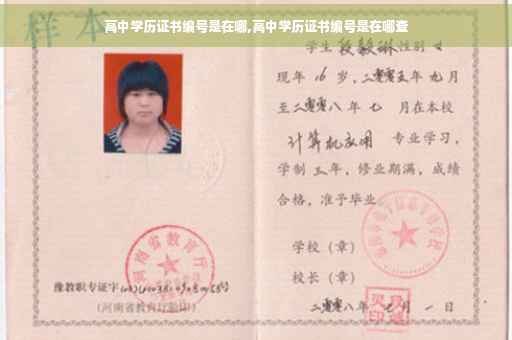 高中学历证书编号是在哪,高中学历证书编号是在哪查
样本
学生段毅琳性别女
现年16岁,二零零五年九月
至二零零八年七月在本校
计算机应用专业学习,
学制三年,修业期满,成绩
合格,准予毕业。
学校(章)
校长(章)
二零零八年七月一日
河南省教育厅
豫教职专证字
(河南省教育厅验印)